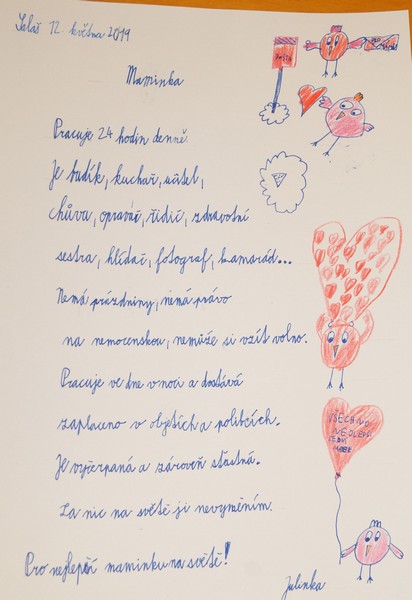 Saláš 12. května 2019
Maminka
Pošta
Pracuje 24 hodin denně.
Je budík, kuchař, učitel,
chůva, opravář, řidič, zdravotní
sestra, hlídač, fotograf, kamarád...
Nemá prázdniny, nemá právo
na nemocenskou, nemůže si vzít volno.
Pracuje ve dne v noci a dostává
zaplaceno v objetích a polibcích.
VŠECHNO
NEJLEPŠÍ
Je vyčerpaná a zároveň šťastná.
Za nic na světě ji nevyměním.
Pro nejlepší maminku na světě!
Julinka